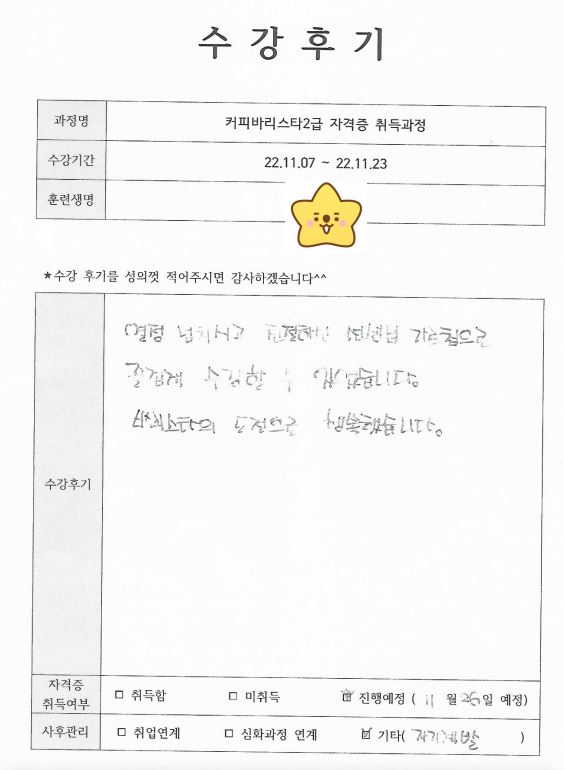 수강후기
과정명 커피바리스타2급 자격증 취득과정
수강기간 22.11.07 ~ 22.11.23
훈련생명
★수강 후기를 성의껏 적어주시면 감사하겠습니다^^
수강후기
열정 넘치시고 친절한 선생님 가르침으로
즐겁게 수강할 수 있었습니다
도전으로
자격증 취득여부 □ 취득함 □ 미취득 ☑ 진행예정 ( 11 월 26일 예정)
사후관리 □ 취업연계 □ 심화과정 연계 ☑ 기타( 자기개발 )